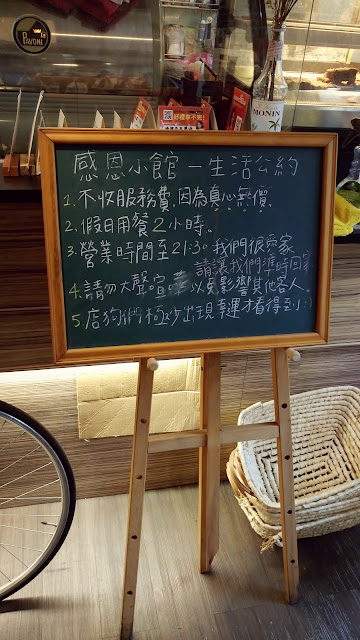 PAVONI
MONIN
感恩小館－生活公約
1. 不收服務費,因為真心無價.
2. 假日用餐2小時。
3. 營業時間至21:30 我們很愛家
請讓我們準時回家
4. 請勿大聲喧嘩以免影響其他客人。
5. 店狗們極少出現幸運才看得到:)